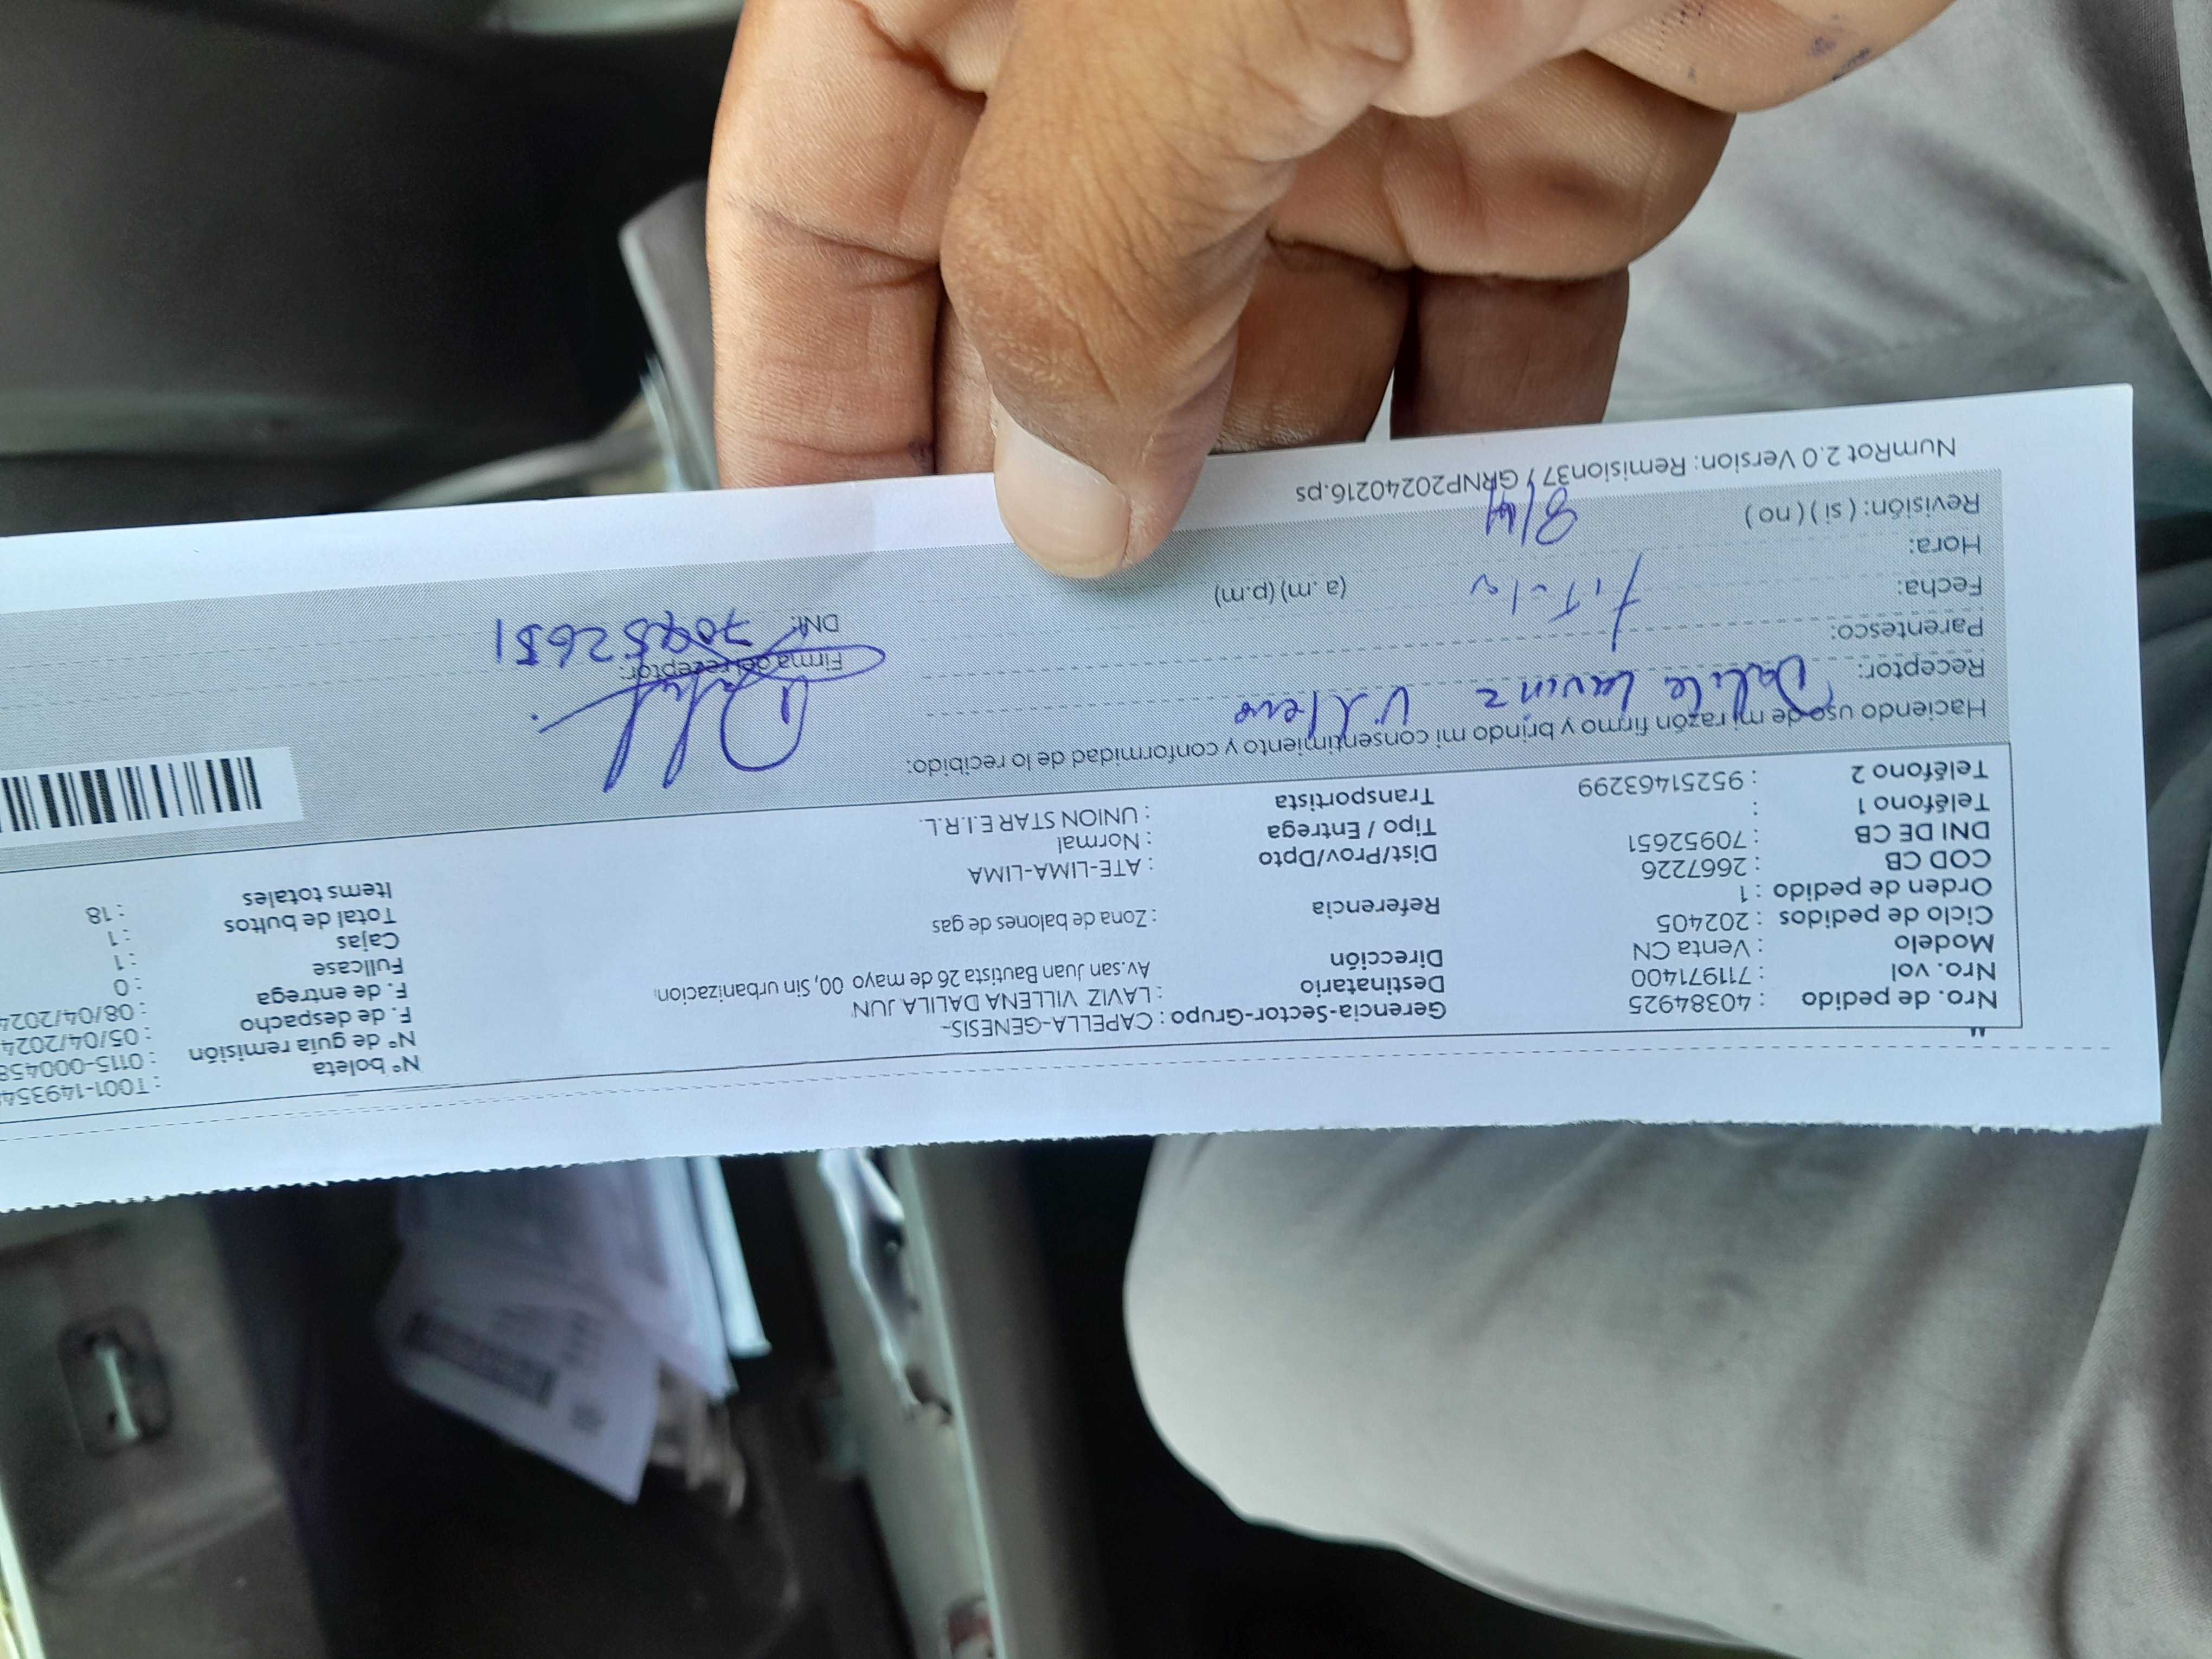 Nro. de pedido : 40384925
Nro. vol : 711971400
Modelo : Venta CN
Ciclo de pedidos : 202405
Orden de pedido : 1
COD CB : 2667226
DNI DE CB : 70952651
Teléfono 1 :
Teléfono 2 : 95251463299
Gerencia-Sector-Grupo : CAPELLA-GENESIS-
Destinatario : LAVIZ VILLENA DALILA JUN
Dirección Av.san Juan Bautista 26 de mayo 00, Sin urbanizacion,
Referencia : Zona de balones de gas
Dist/Prov/Dpto : ATE-LIMA-LIMA
Tipo / Entrega : Normal
Transportista : UNION STAR E.I.R.L.
N° boleta : T001-149354
N° de guía remisión : 0115-000458
F. de despacho : 05/04/2024
F. de entrega : 08/04/2024
Fullcase : 0
Cajas : 1
Total de bultos : 1
Items totales : 18
Haciendo uso de mi razón firmo y brindo mi consentimiento y conformidad de lo recibido:
Receptor: Dalila
Parentesco: Titular
Fecha: 8/4
Hora: (a.m) (p.m)
Revisión: ( si ) ( no )
Firma del receptor:
DNI: 70952651
NumRot 2.0 Version: Remision37 / GRNP20240216.ps